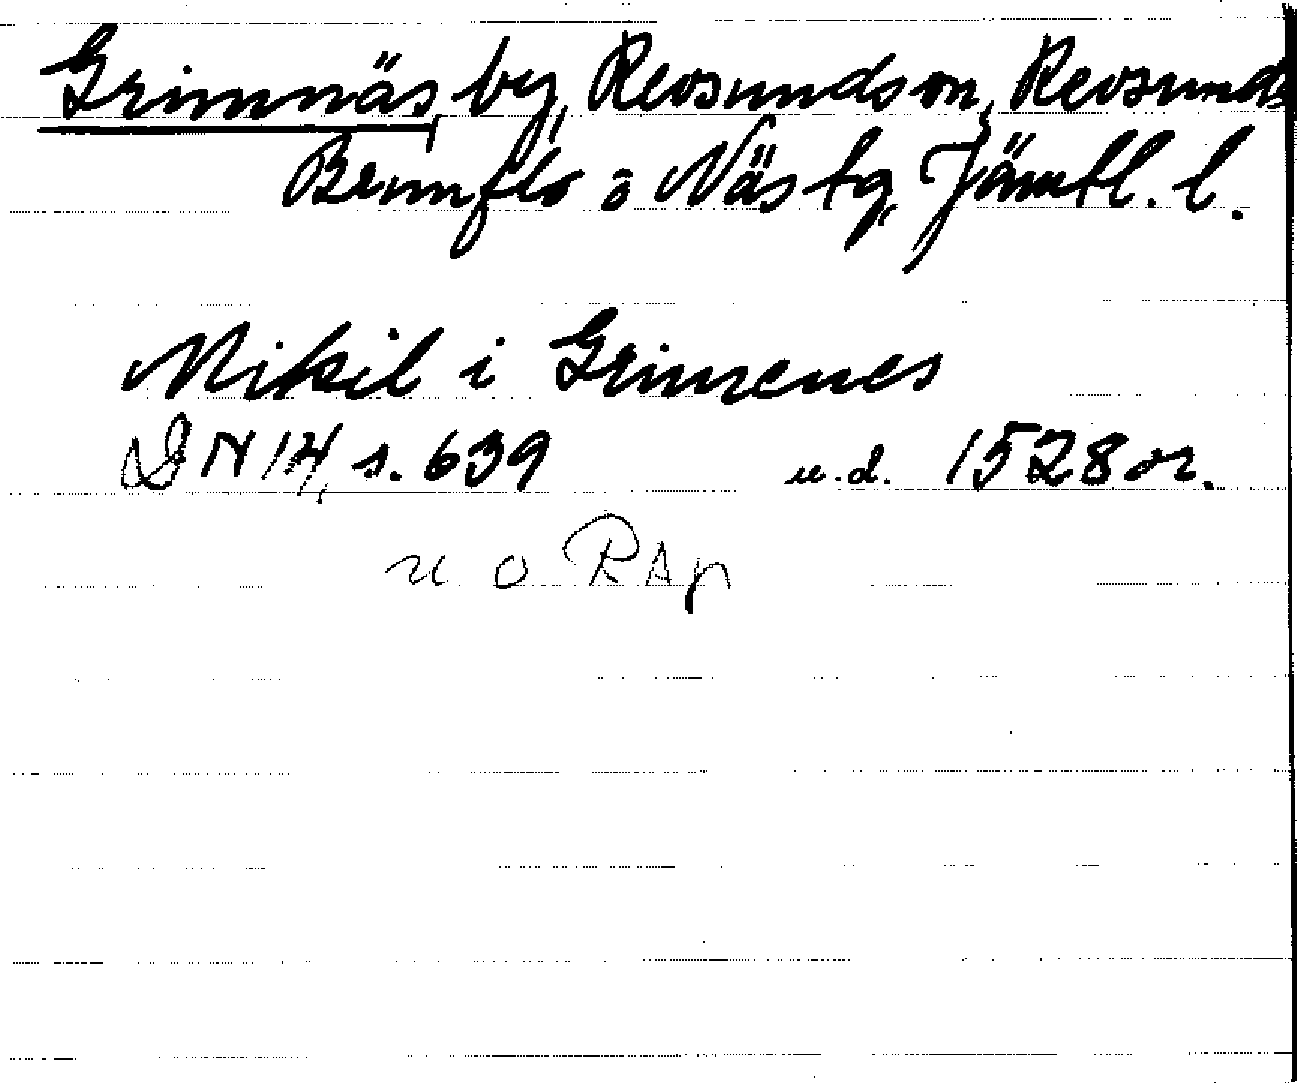 Grimnäs, by, Revsunds sn, Revsunds
Brunflo o Näs tg, Jämtl. l.
Mikil i Grimenes
DN 14, s. 639 u.d. 1528 or.
n o RAp